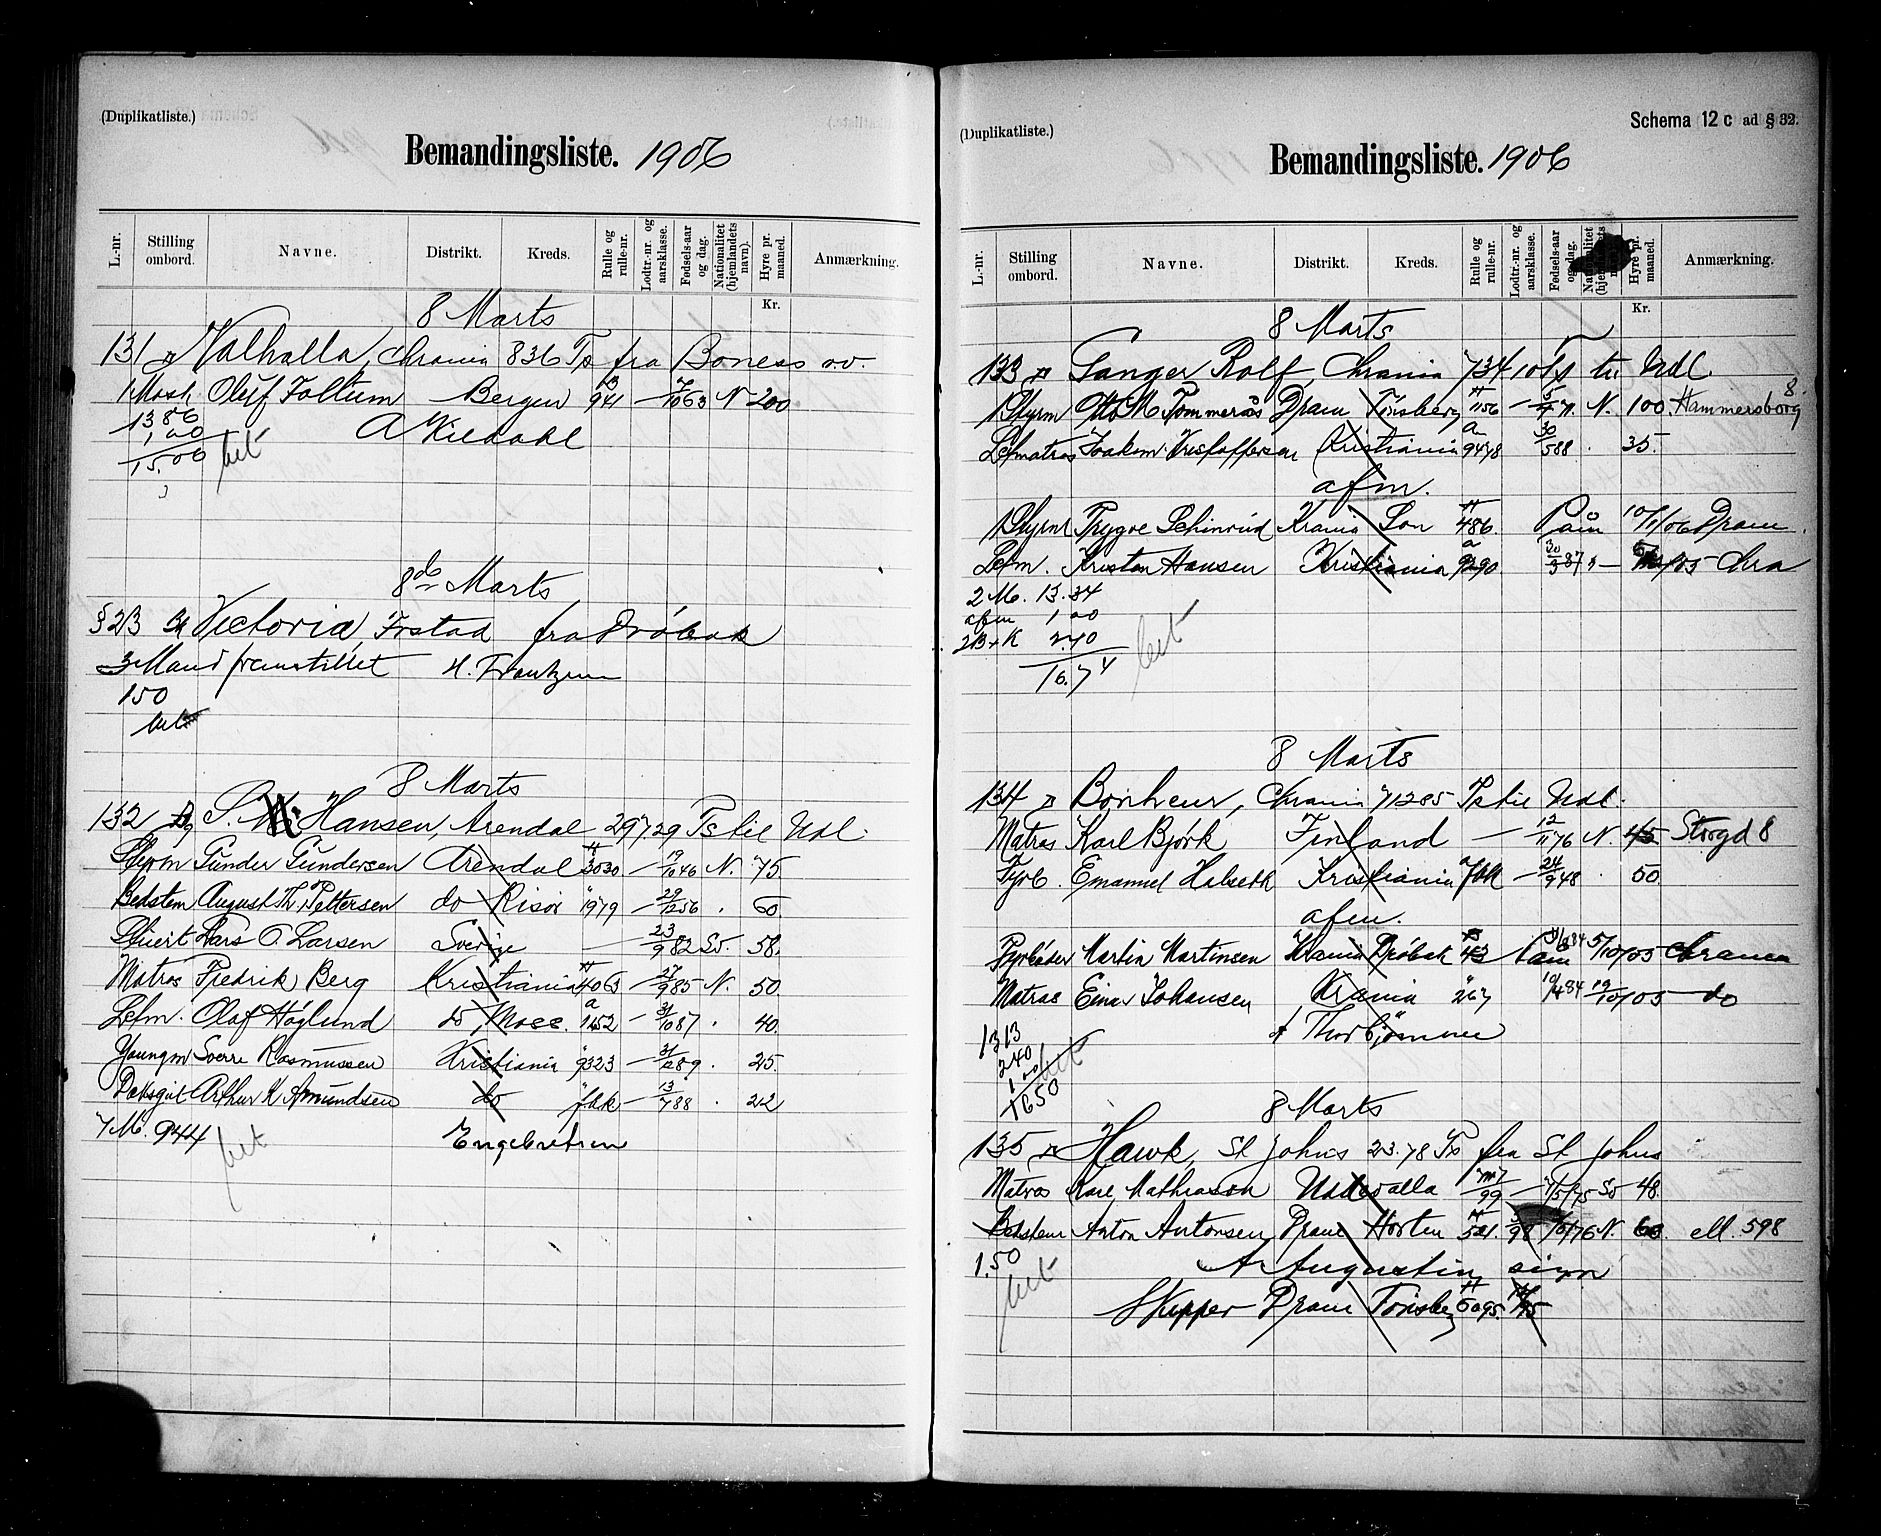 (Duplikatliste.)
Bemandingsliste. 1906
L.-nr. Stilling ombord. Navne. Distrikt. Kreds. Rulle og rulle-nr. Lodtr.-nr. og aarsklasse. Fødsels-aar og dag. Nationalitet (hjemlandets navn). Hyre pr. maaned. Anmærkning.
Kr.
8 Marts
131 Valhalla, Chrania 836 Ts fra Boness
Mask Oluf Foltum Bergen 941 N 200
1386
1,00
15,00 bet
8de Marts
§ 23 Victoria, Frstad fra Drøbak
3 Mand fremstillet H. Frantzen
150
bet
8 Marts
132 S. Hansen, Arendal 297.29 Ts til Udl.
Styrm Gunder Gundersen Arendal 3030 19/10 46 N. 75
Bedstem August Th. Pettersen do Risør 1979 29/12 56 60
Stuert Lars O. Larsen Sverige 23/9 82 Sv. 58.
Matros Fredrik Berg Kristiania 4063 27/9 85 N. 50.
Letm. Olaf Høglund do Moss. 1452 31/10 87 40.
Youngm Sverre Rasmussen Kristiania 9323 31/12 89. 25.
Dæksgut Arthur K Amundsen do fbk 13/7 88 22
7 M. 944 bet Engebretsen
(Duplikatliste.)
Schema 12 c ad § 32.
Bemandingsliste. 1906
L.-nr. Stilling ombord. Navne. Distrikt. Kreds. Rulle og rulle-nr. Lodtr.-nr. og aarsklasse. Fødsels-aar og dag. Hyre pr. maaned. Anmærkning.
Kr.
8 Marts
133 Ganger Rolf, Chrania 734 10 Ts til Udl.
1 Styrm Otto M Tommerås Dram Tønsberg 1156 N. 100. Hammersborg 8
Letmatros Joakim Kristoffersen Kristiania 9478 30/5 88 35.
afm.
1 Styrm Trygve Schinrud Krania Son 486. Påm 10/1/06 Dram.
Letm. Kristan Hansen Kristiania 9290 30/3 87 /05 Chra
2 M. 13.34
afm 1 00
2B+K 2.40
16.74 bet
8 Marts
134 Bonheur, Chrania 71285 Ts til Udl.
Matros Karl Bjørk Finland 12/11 76 N. 45 Storgd 8
Fyrb. Emanuel Halseth Kristiania fbk 24/9 48 50.
afm.
Fyrbøder Martin Martinsen Krania Drøbak 43 Påm 5/10/05 Chrania
Matros Einar Johansen Krania 267 19/10/05 do
1313 Thorbjørnsen
240
1 00
1650 bet
8 Marts
135 Hawk, St Johns 23.78 Ts fra St Johns
Matros Karl Mathiason Uddevalla /99 /5/75 Sv 48.
Bedstem Anton Antonsen Dram Horten 521. 98 /76 N. 60. ell. 598
1.50 A Augustin sign
bet Skipper Dram Tønsberg 6095. /95